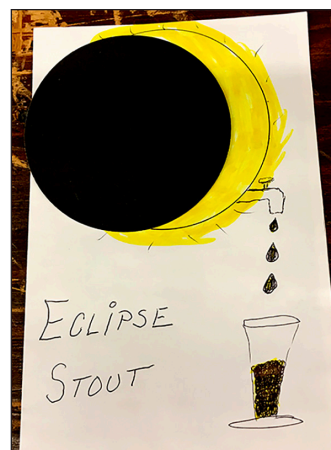 ECLiPSE
STOUT